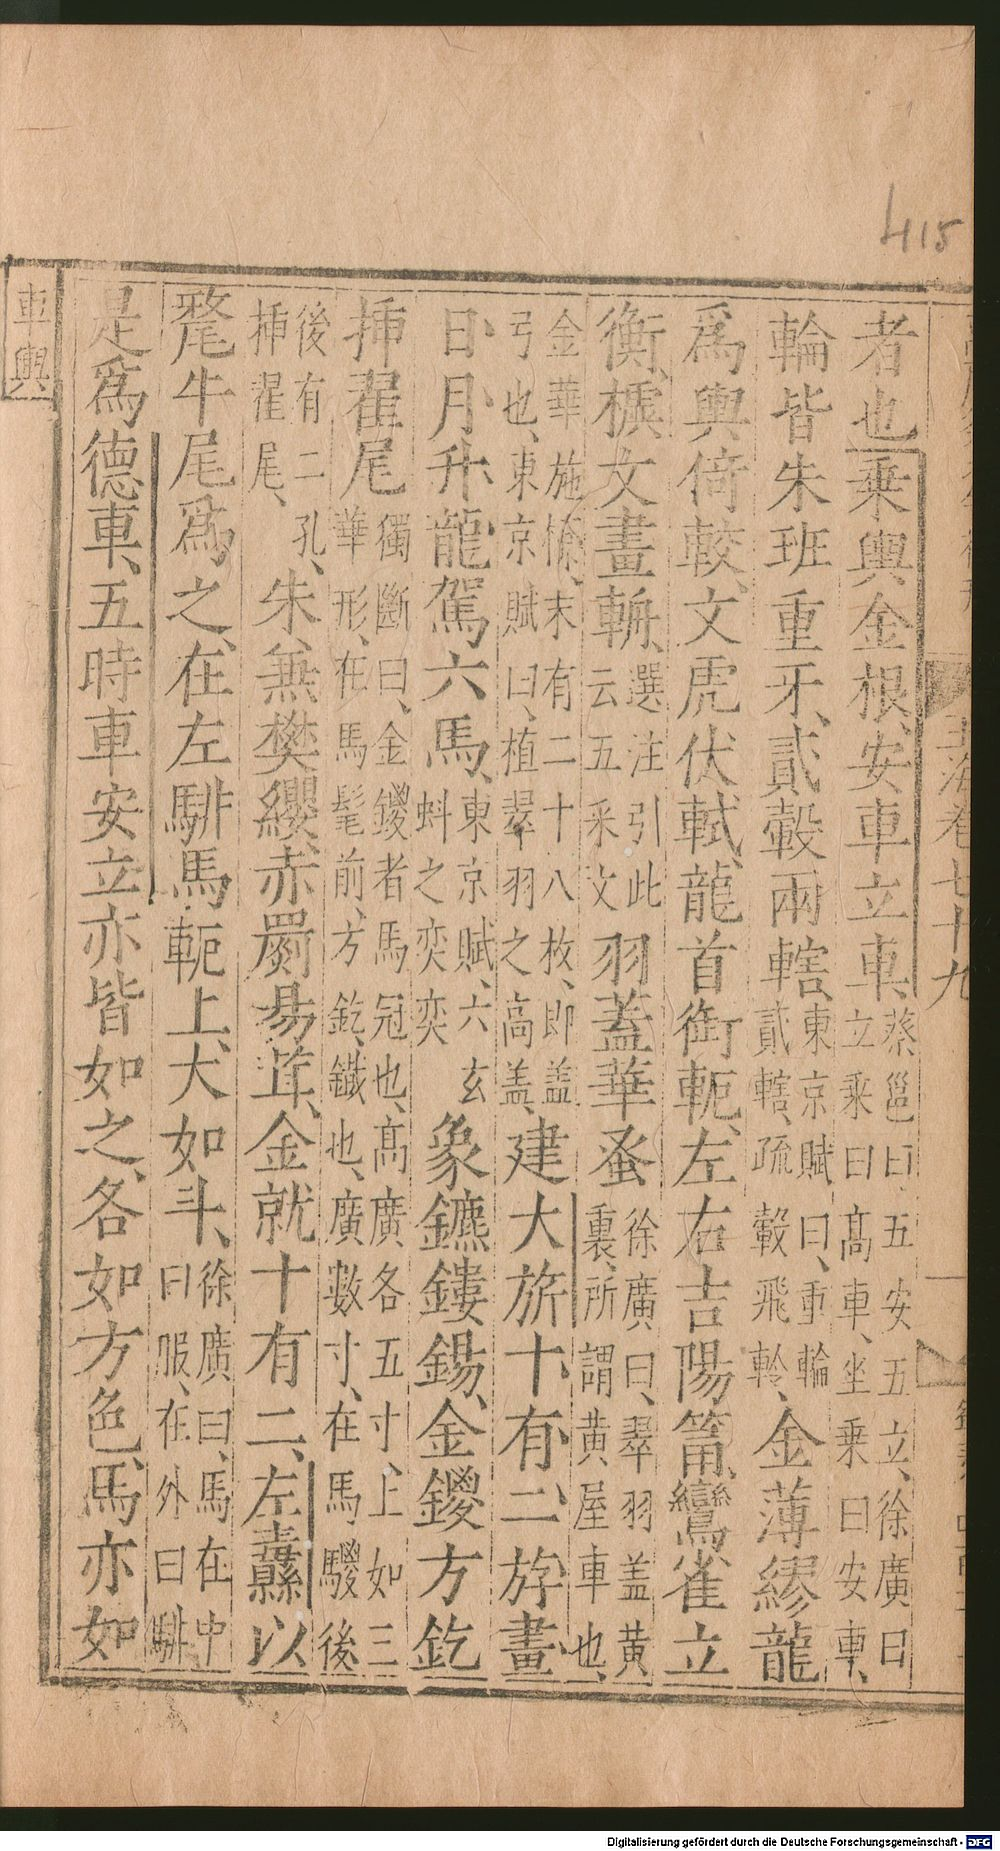 玉海卷七十九
者也乘輿金根、安車立車、
蔡邕曰、五安五立、徐廣曰
立乘曰高車、坐乘曰安車、
輪皆朱班重牙、貳轂兩轄、
東京賦曰、重輪
貳轄、疏轂飛軨、
金薄繆龍
爲輿倚較、文虎伏軾、龍首銜軛、左右吉陽筩、鸞雀立
衡、㯫文畫輈、
選注引此
云五采文
羽蓋華蚤
徐廣曰、翠羽盖黄
裏、所謂黄屋車也、
金華施橑、末有二十八枚、即盖
弓也、東京賦曰、植翠羽之高盖、
建大旂十有二斿、畫
日月升龍、駕六馬、
東京賦、六玄
虯之奕奕
象鑣鏤錫、金鍐方釳
挿翟尾
獨斷曰、金鍐者馬冠也、高廣各五寸、上如三
華形、在馬髦前、方釳、鐵也、廣數寸、在馬騣後
後有二孔、
挿翟尾、
朱兼樊纓、赤罽昜茸、金就十有二、左纛以
氂牛尾爲之、在左騑馬軛上、大如斗、
徐廣曰、馬在中
曰服、在外曰騑
是爲德車、五時車安立亦皆如之、各如方色、馬亦如
車輿
415
Digitalisierung gefördert durch die Deutsche Forschungsgemeinschaft - DFG